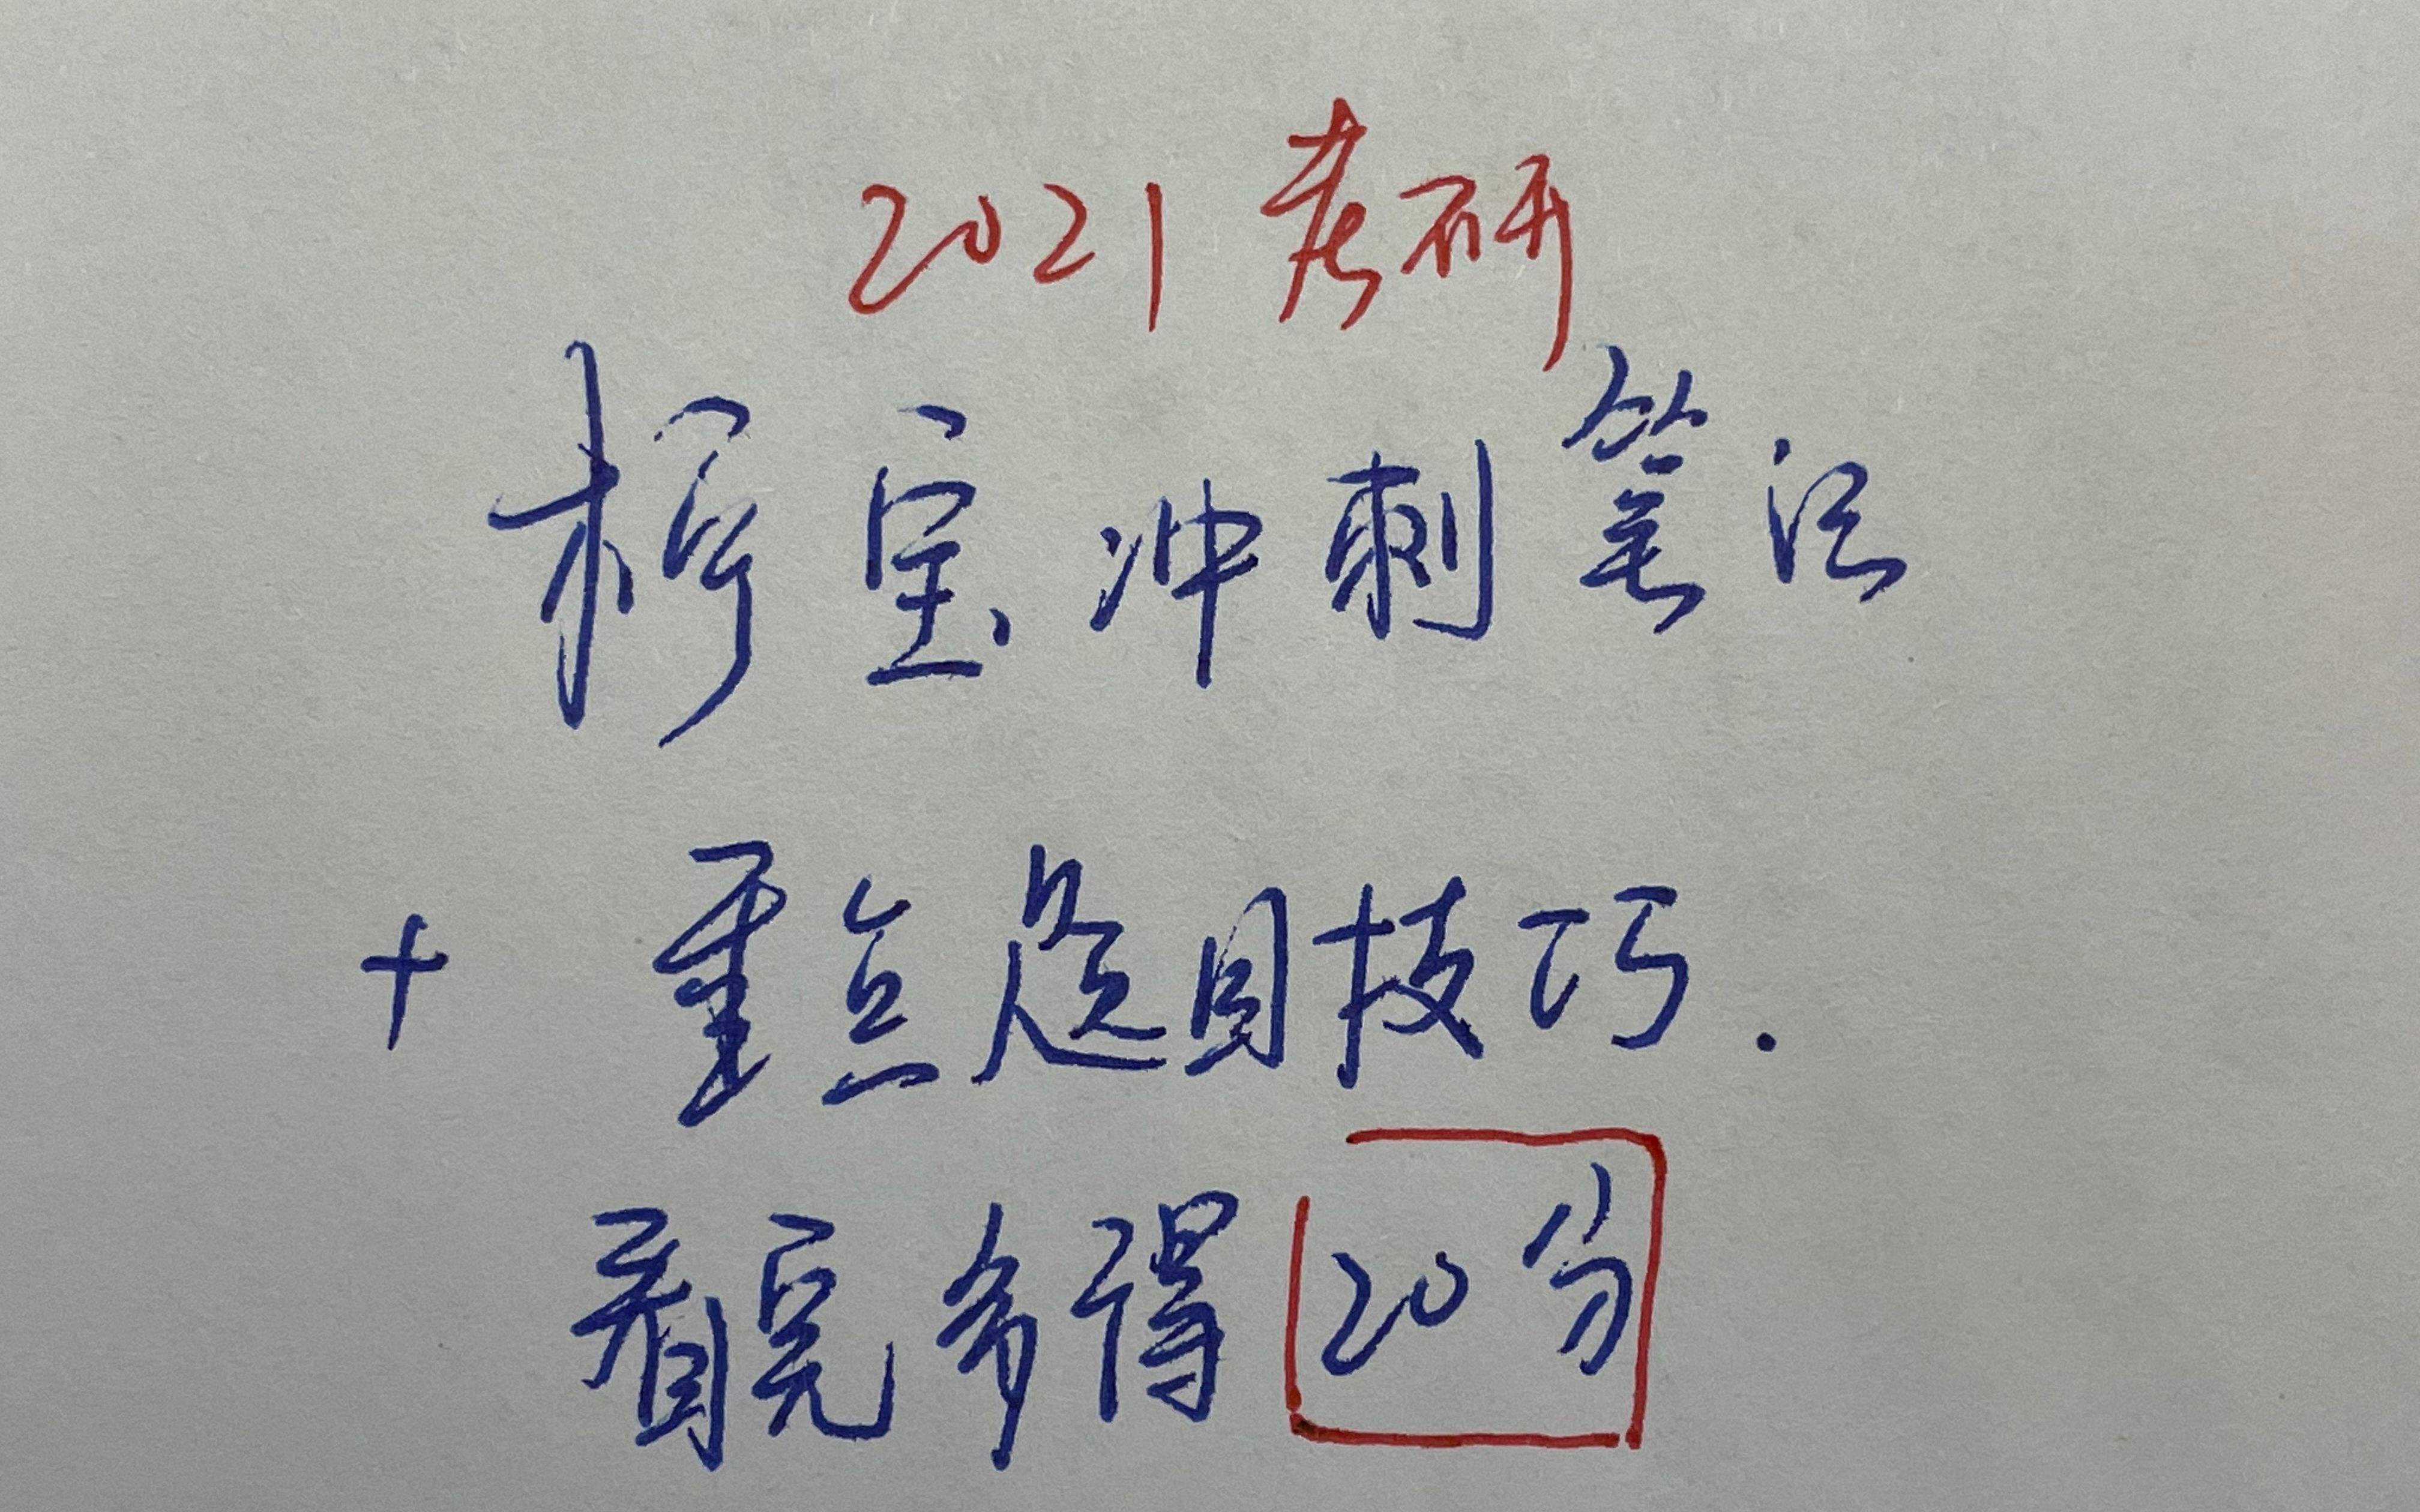 2021考研
樗宝冲刺笔法
+ 重点题目技巧.
看完多得20分